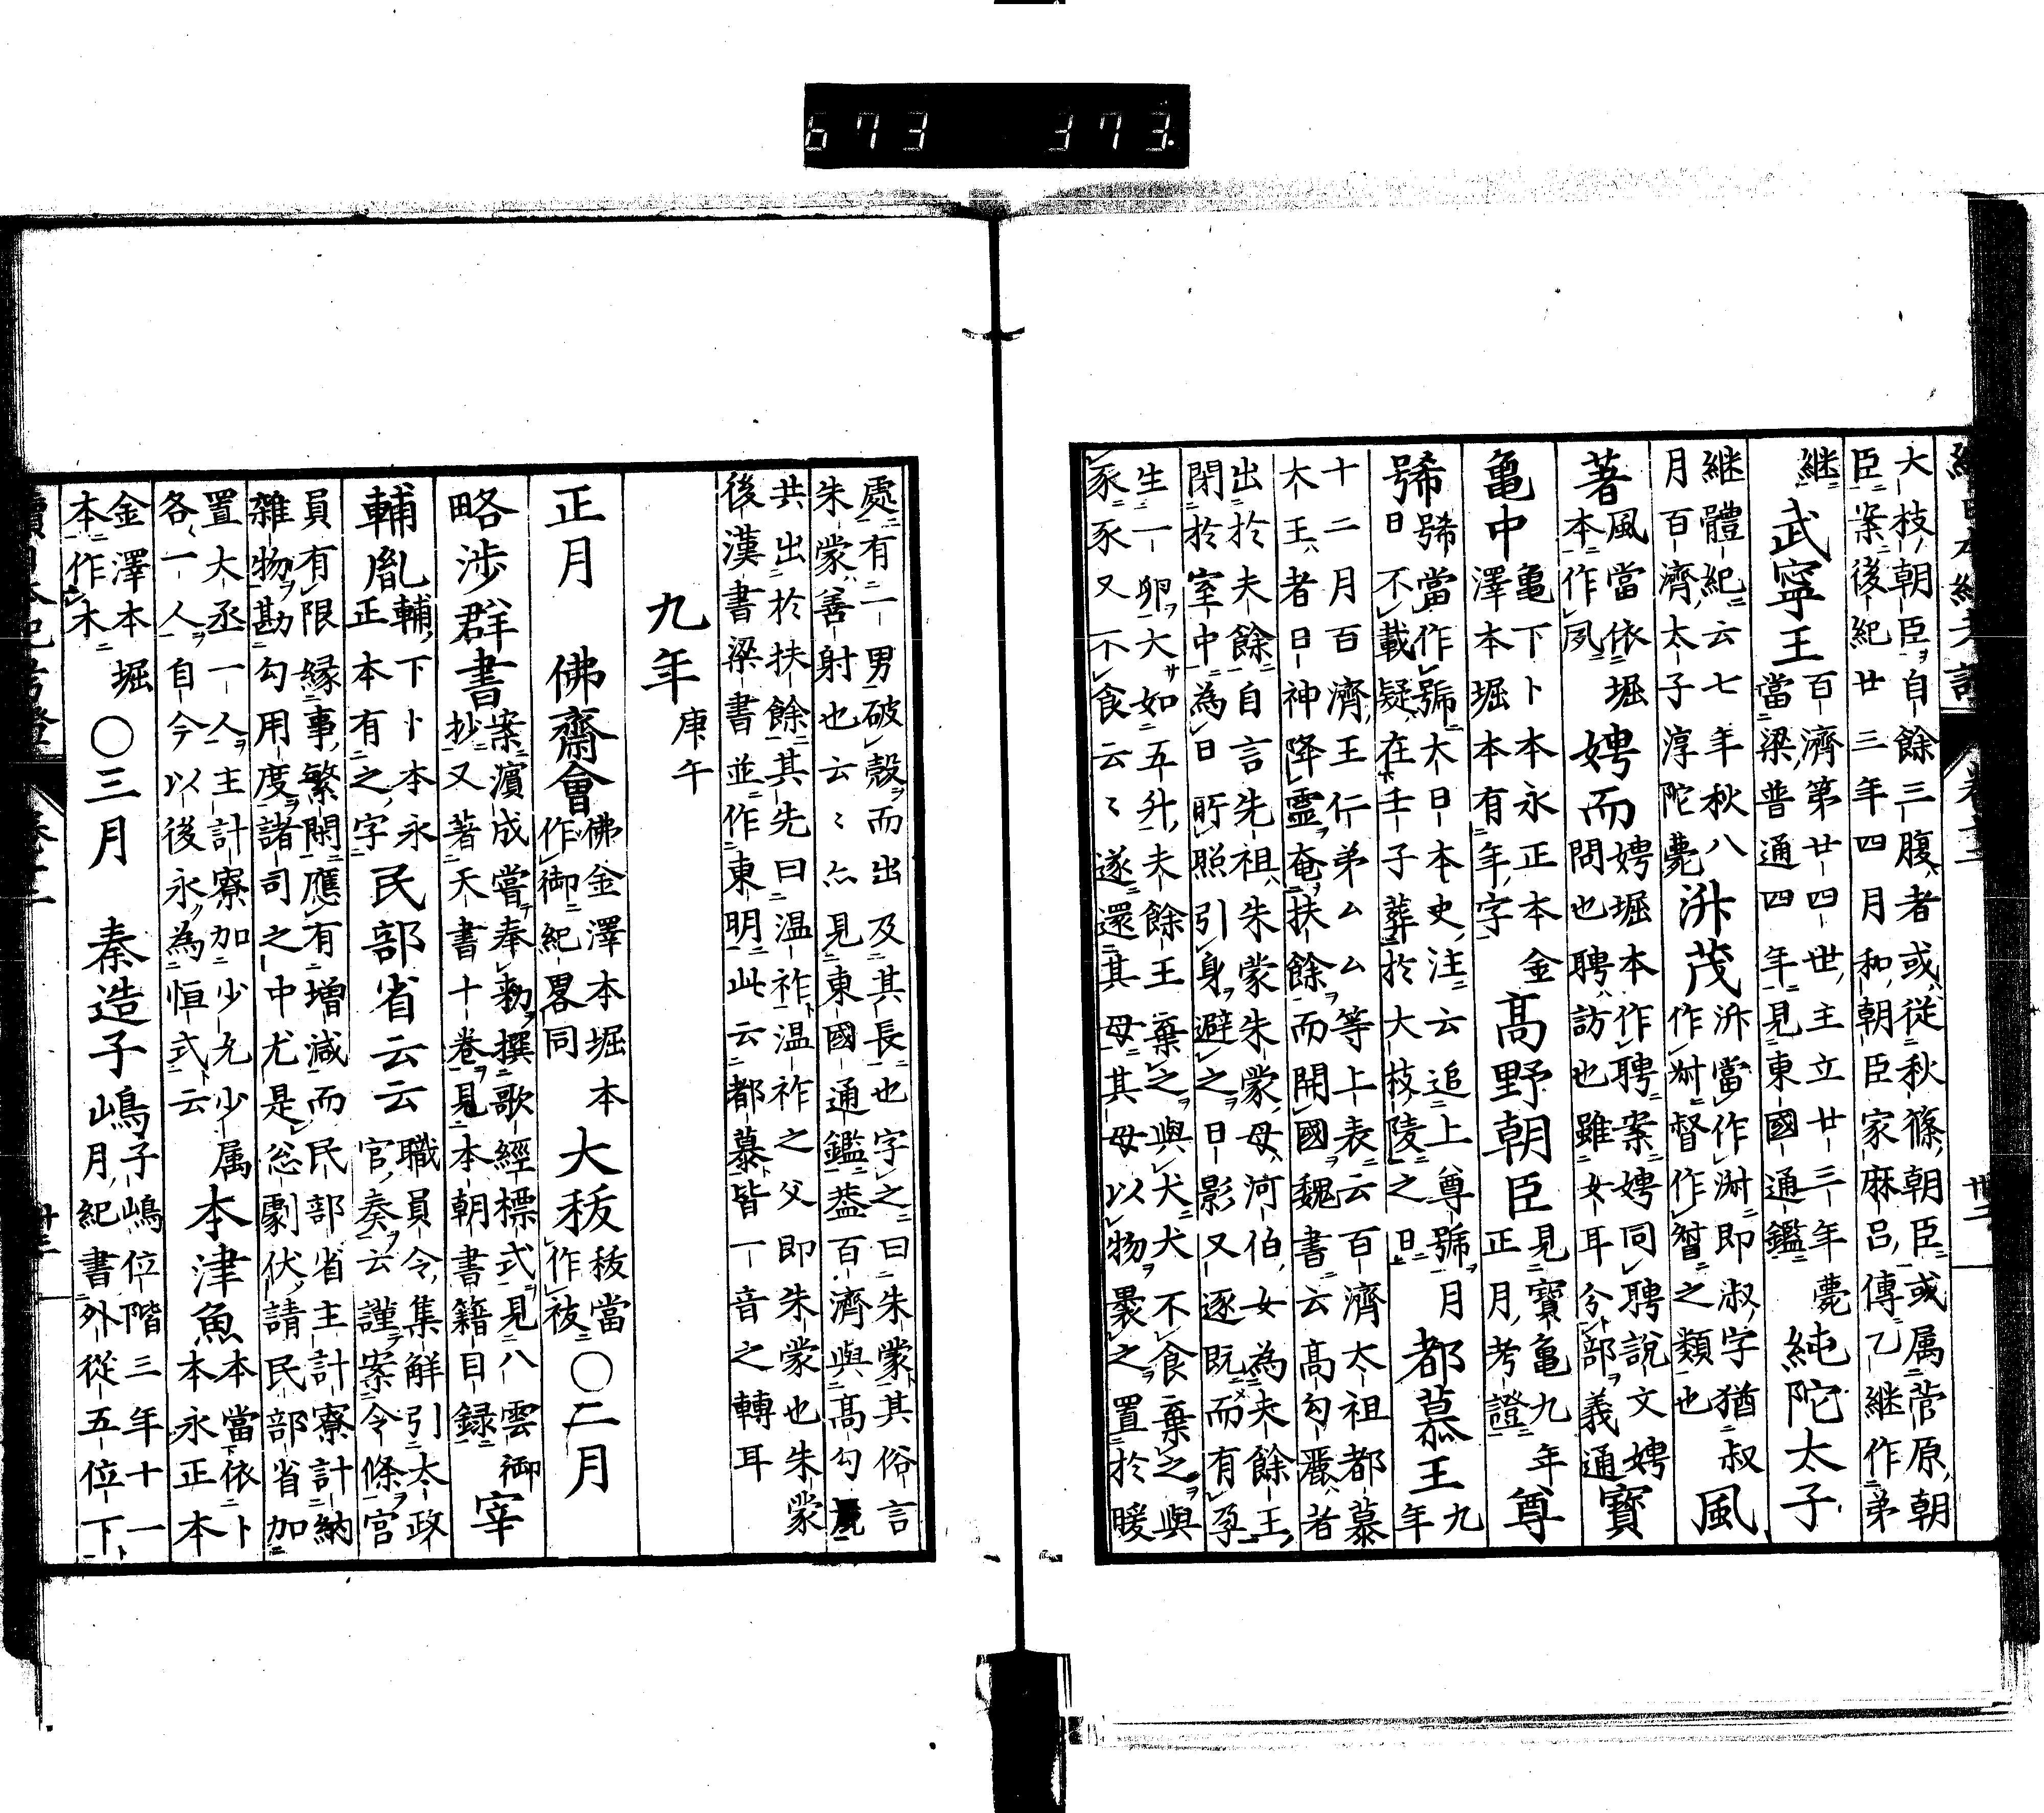 673 373
大枝朝臣自餘三腹者或從秋篠朝臣或属菅原朝
臣案後紀廿三年四月和朝臣家麻呂傳乙継作弟
継 武寧王 百濟第廿四世主立廿三年薨
當梁普通四年見東國通鑑 純陀太子
継體紀云七年秋八
月百濟太子淳陀薨 泝茂 泝當作溯即叔字猶叔
作尌督作督之類也 風
著 風當依堀
本作夙 娉而 娉堀本作聘案娉同聘說文娉
問也聘訪也雖女耳今部義通 寶
亀中 亀下卜本永正本金
澤本堀本有年字 高野朝臣 見寶亀九年
正月考證 尊
號 號當作號大日本史注云追上尊號月
日不載疑在壬子葬於大枝陵之日 都慕王 九年
十二月百濟王仁弟ムム等上表云百濟太祖都慕
大王者日神降靈奄扶餘而開國魏書云高勾麗者
出於夫餘自言先祖朱蒙朱蒙母河伯女為夫餘王
閉於室中為日所照引身避之日影又逐既而有孕
生一卵大如五升夫餘王棄之與犬犬不食棄之與
豕豕又不食云〻遂還其母其母以物裹之置於暖
處有一男破殼而出及其長也字之曰朱蒙其俗言
朱蒙善射也云〻亦見東國通鑑蓋百濟與高勾麗
共出於扶餘其先曰温祚温祚之父即朱蒙也朱蒙
後漢書梁書並作東明此云都慕皆一音之轉耳
九年 庚午
正月 佛齋會 佛金澤本堀本
作御紀畧同 大秡 秡當
作祓 〇二月
略涉群書 案濱成嘗奉勅撰歌經標式見八雲御
抄又著天書十巻見本朝書籍目録 宰
輔胤 輔下卜本永
正本有之字 民部省云云 職員令集解引太政
官奏云謹案令條官
員有限縁事繁閑應有増減而民部省主計寮計納
雜物勘勾用度諸司之中尤是忩劇伏請民部省加
置大丞一人主計寮加少允少属
各一人自今以後永為恒式云 本津魚 本當依卜
本永正本
金澤本堀
本作木 〇三月 秦造子嶋 子嶋位階三年十一
月紀書外從五位下